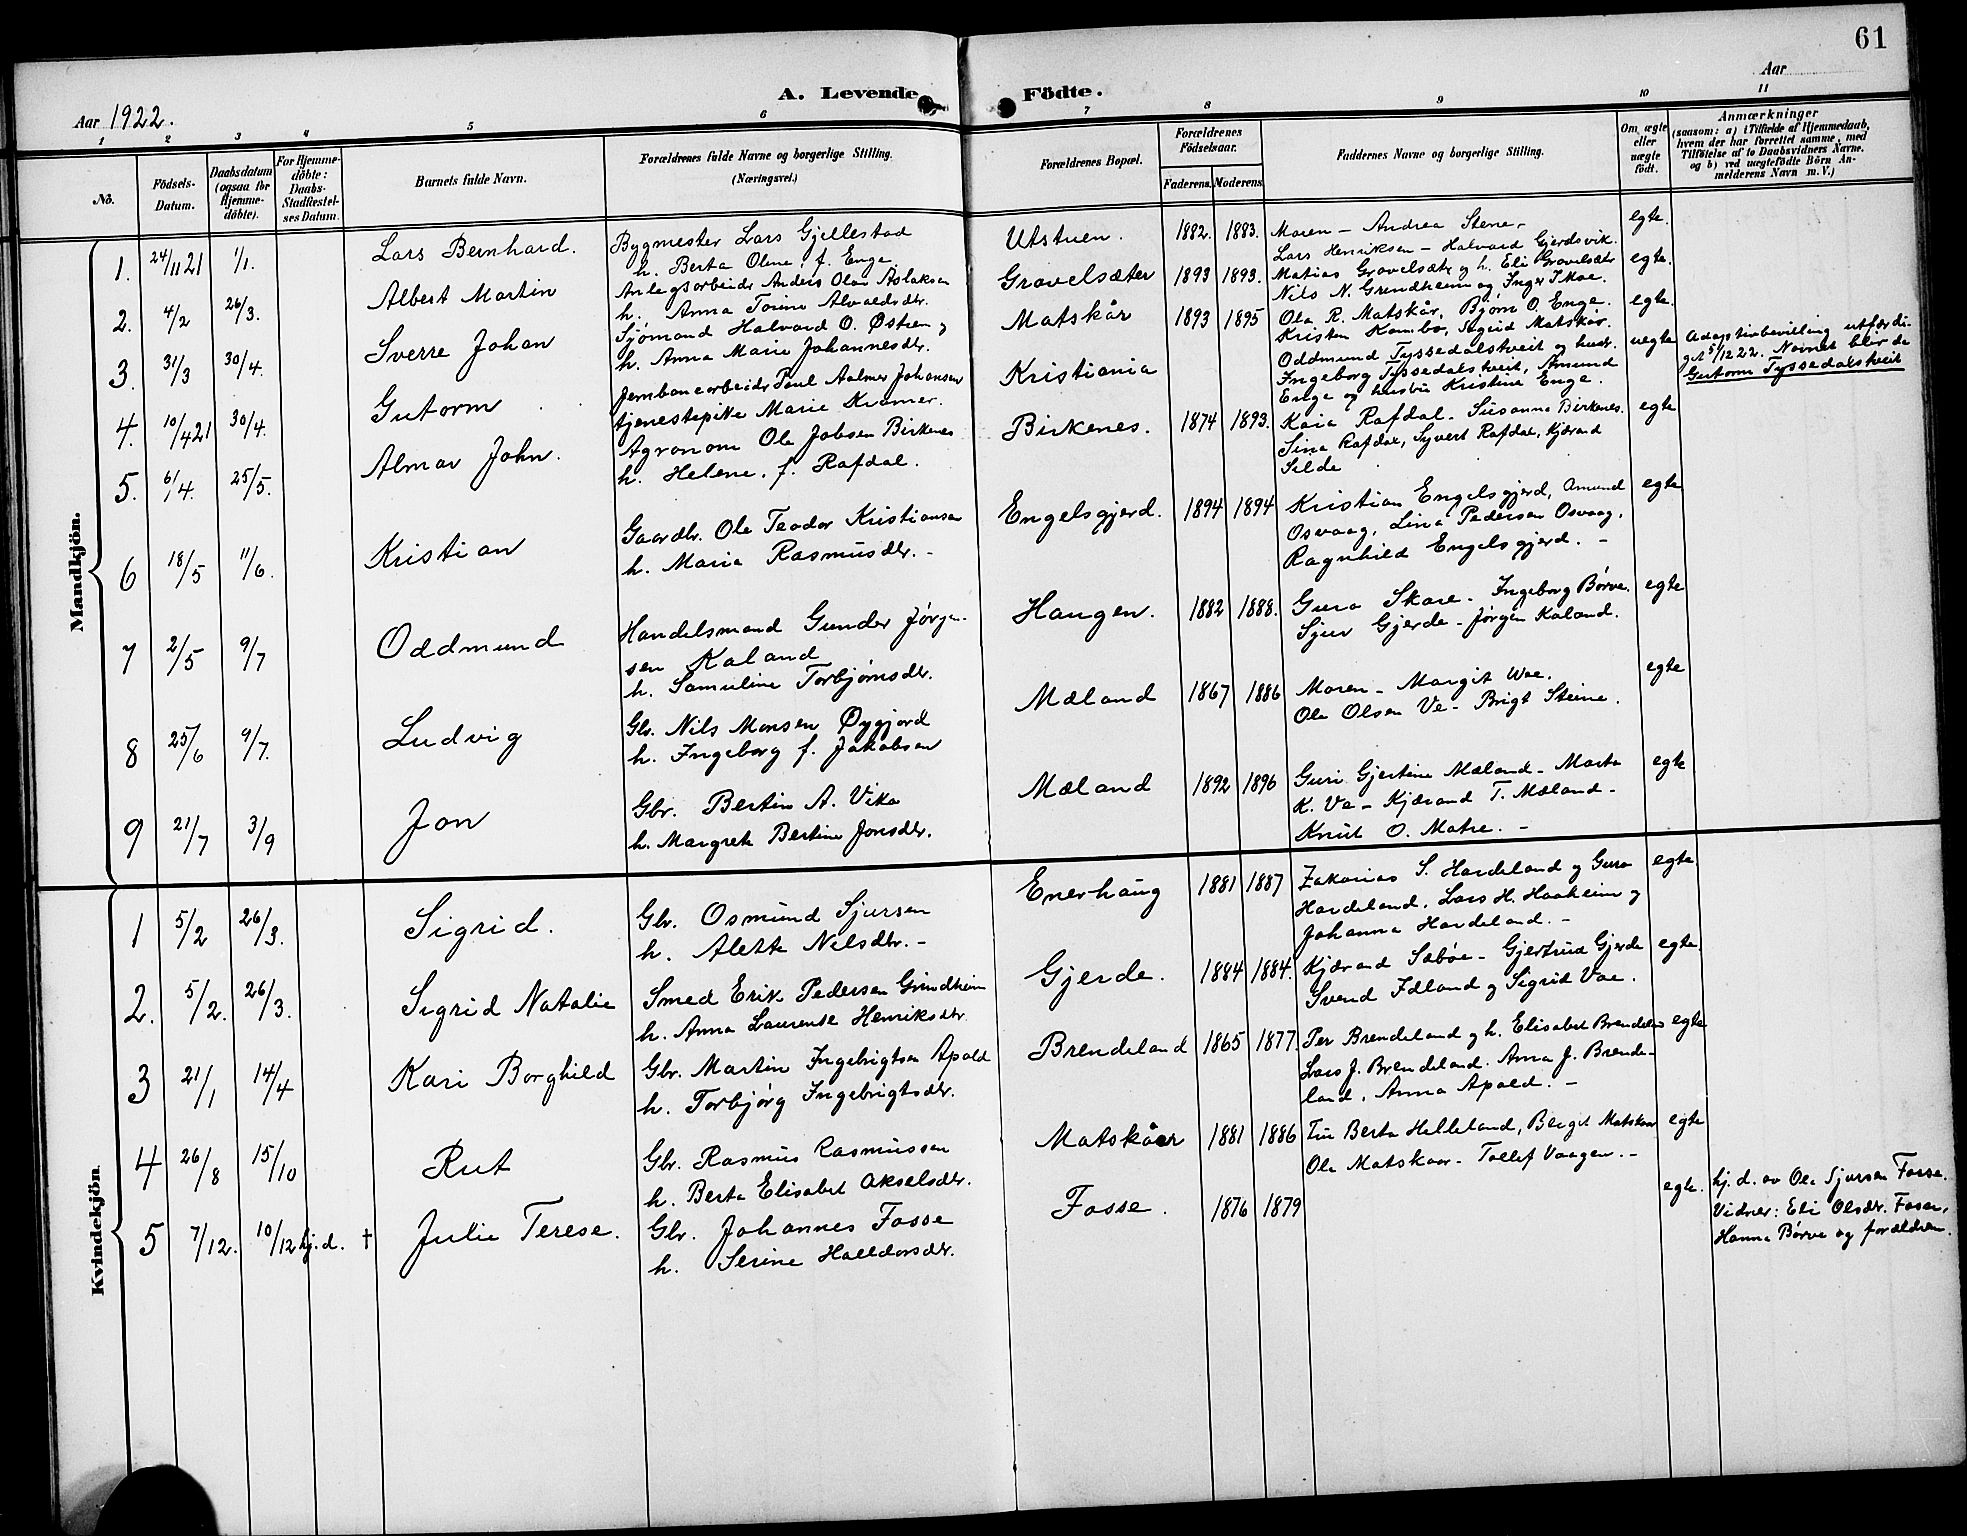 61
A. Levende Födte.
Aar 1922.
Aar
1 2 3 4 5 6 7 8 9 10 11
No.
Födsels-Datum.
Daabsdatum (ogsaa for Hjemme-döbte).
For Hjemme-döbte: Daabs-Stadfæstel-ses Datum.
Barnets fulde Navn.
Forældrenes fulde Navne og borgerlige Stilling. (Næringsvei.)
Forældrenes Bopæl.
Forældrenes Födselsaar.
Faderens. Moderens.
Faddernes Navne og borgerlige Stilling.
Om ægte eller uægte födt.
Anmærkninger
(saasom: a) i Tilfælde af Hjemmedaab,
hvem der har forrettet samme, med
Tilföielse af to Daabsvidners Navne.
og b) ved uægtefödte Börn An-
melderens Navn m. V.)
Mandkjön.
1. 24/11 21 1/1. Lars Bernhard. Bygmester Lars Gjellestad
h. Berta Oline f. Enge
Utstuen. 1882. 1883. Maren - Andrea Stene,
Lars Henriksen - Halvard Gjerdsvik. egte.
2. 4/2 26/3. Albert Martin Anlegsarbeider Anders Olav Aslaksen
h. Anna Torine Alvaldsdtr.
Gravelsæter 1893 1893. Matias Gravelsæter og h. Eli Gravelsæter
Nils N. Grindheim og Inger Skoe. egte.
3. 31/3 30/4. Sverre Johan Sjømand Halvard O. Østren og
h. Anna Marie Johannesdtr.
Matskår 1893 1895 Ola R. Matskår, Bjørn O. Enge.
Kristen Kambo, Sigrid Matskår. egte.
4. 10/4 21 30/4. Gutorm Jernbanearbeider Paul Aalmer Johansen
tjenestepike Marie Kramer.
Kristiania Oddmund Tyssedalstveit og hustr.
Ingeborg Tyssedalstveit, Amund
Enge og hustru Kristine Enge. uegte
Adoptivbevilling utfærdi-
get 5/12 22. Navnet blir da
Gutorm Tyssedalstveit
5. 6/4. 25/5. Almar John. Agronom Ole Jobsen Birkenes
h. Helene, f. Rafdal.
Birkenes. 1874 1893. Kaia Rafdal - Susanna Birkenes.
Sina Rafdal, Syvert Rafdal, Kjærand
Silde egte
6 18/5 11/6. Kristian Gaardbr. Ole Teodor Kristiansen
h. Maria Rasmusdtr. -
Engelsgjerd. 1894 1894 Kristian Engelsgjerd, Amund
Osvaag, Lina Pedersen Osvaag,
Ragnhild Engelsgjerd. - egte
7 2/5 9/7 Oddmund Handelsmand Gunder Jørgen-
sen Kaland
h. Samuline Torbjørnsdtr.
Haugen. 1882 1888. Guro Skare - Ingeborg Børve.
Sjur Gjerde - Jørgen Kaland. egte
8 25/6 9/7. Ludvig Gbr. Nils Monsen Øygjord
h. Ingeborg f. Jakobsen
Mæland 1867 1886 Maren - Margit Vae.
Ole Olsen Ve - Brigt Steine. egte
9 21/7 3/9 Jon Gbr. Bertin A. Vika
h. Margrete Bertine Jonsdtr.
Mæland 1892 1896 Guri Gjertine Mæland - Marta
K. Va - Kjærand T. Mæland -
Knut O. Matre. - egte
Kvindekjön.
1 5/2 26/3. Sigrid. Gbr. Osmund Sjursen
h. Alette Nilsdtr. -
Enerhaug 1881 1887 Zakarias S. Hardeland og Guro
Hardeland. Lars H. Haaheim og
Johanna Hardeland. - egte.
2. 5/2. 26/3. Sigrid Natalie Smed Erik Pedersen Grindheim
h. Anna Laurense Henriksdtr.
Gjerde. 1884 1884. Kjærand Sæbøe - Gjertrud Gjerde
Svend Idland og Sigrid Vae. egte.
3 21/1 14/4 Kari Borghild Gbr. Martin Ingebrigtsen Apald
h. Torbjørg Ingebrigtsdtr.
Brendeland 1865 1877. Per Brendeland og h. Elisabet Brendeland
Lars J. Brendeland. Anna J. Brende-
land, Anna Apald. - egte
4 26/8 15/10 Rut Gbr. Rasmus Rasmussen
h. Berta Elisabet Akselsdtr.
Matskåer 1881 1886 Fru Berta Helleland, Bergit Matskaar
Ole Matskaar - Tollef Vaagen. - egte
5 7/12. 10/12 hj.d. † Julie Terese. Gbr. Johannes Fosse
h. Serine Halldorsdtr.
Fosse. 1876 1879 egte. hj. d. av Ole Sjursen Fosse.
Vidner: Eli Olsdtr. Fosse,
Hanna Børve og forældren.